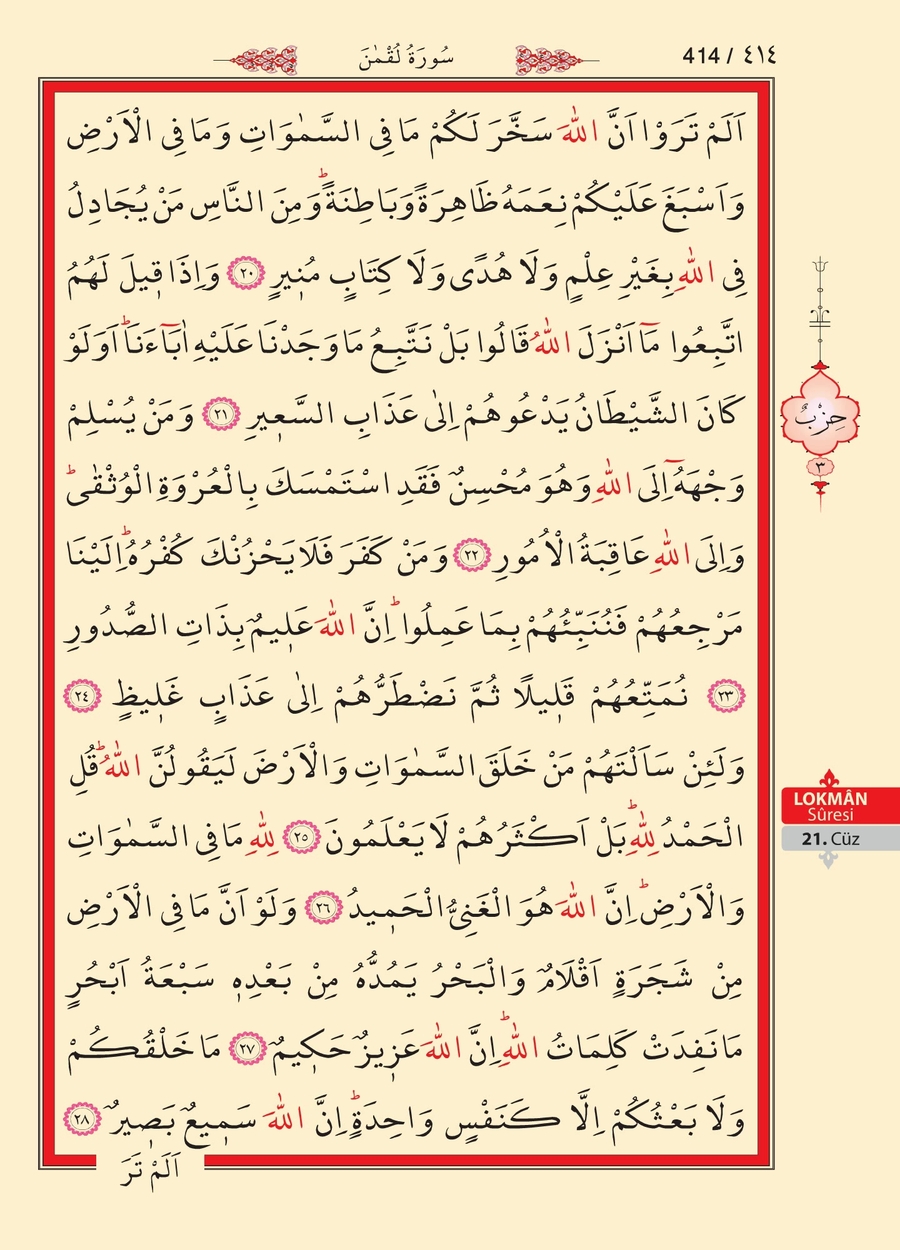 ٤١٤ / 414
سُورَةُ لُقْمٰنَ
اَلَمْ تَرَوْا اَنَّ اللّٰهَ سَخَّرَ لَكُمْ مَا فِى السَّمٰوَاتِ وَمَا فِى الْاَرْضِ
وَاَسْبَغَ عَلَيْكُمْ نِعَمَهُ ظَاهِرَةً وَبَاطِنَةًۜ وَمِنَ النَّاسِ مَنْ يُجَادِلُ
فِى اللّٰهِ بِغَيْرِ عِلْمٍ وَلَا هُدًى وَلَا كِتَابٍ مُنٖيرٍ ﴿٢٠﴾ وَاِذَا قٖيلَ لَهُمُ
اتَّبِعُوا مَٓا اَنْزَلَ اللّٰهُ قَالُوا بَلْ نَتَّبِعُ مَا وَجَدْنَا عَلَيْهِ اٰبَٓاءَنَاۜ اَوَلَوْ
كَانَ الشَّيْطَانُ يَدْعُوهُمْ اِلٰى عَذَابِ السَّعٖيرِ ﴿٢١﴾ وَمَنْ يُسْلِمْ
وَجْهَهُٓ اِلَى اللّٰهِ وَهُوَ مُحْسِنٌ فَقَدِ اسْتَمْسَكَ بِالْعُرْوَةِ الْوُثْقٰىۜ
وَاِلَى اللّٰهِ عَاقِبَةُ الْاُمُورِ ﴿٢٢﴾ وَمَنْ كَفَرَ فَلَا يَحْزُنْكَ كُفْرُهُۜ اِلَيْنَا
مَرْجِعُهُمْ فَنُنَبِّئُهُمْ بِمَا عَمِلُواۜ اِنَّ اللّٰهَ عَلٖيمٌ بِذَاتِ الصُّدُورِ
﴿٢٣﴾ نُمَتِّعُهُمْ قَلٖيلًا ثُمَّ نَضْطَرُّهُمْ اِلٰى عَذَابٍ غَلٖيظٍ ﴿٢٤﴾
وَلَئِنْ سَاَلْتَهُمْ مَنْ خَلَقَ السَّمٰوَاتِ وَالْاَرْضَ لَيَقُولُنَّ اللّٰهُۜ قُلِ
الْحَمْدُ لِلّٰهِۜ بَلْ اَكْثَرُهُمْ لَا يَعْلَمُونَ ﴿٢٥﴾ لِلّٰهِ مَا فِى السَّمٰوَاتِ
وَالْاَرْضِۜ اِنَّ اللّٰهَ هُوَ الْغَنِىُّ الْحَمٖيدُ ﴿٢٦﴾ وَلَوْ اَنَّ مَا فِى الْاَرْضِ
مِنْ شَجَرَةٍ اَقْلَامٌ وَالْبَحْرُ يَمُدُّهُ مِنْ بَعْدِهٖ سَبْعَةُ اَبْحُرٍ
مَا نَفِدَتْ كَلِمَاتُ اللّٰهِۜ اِنَّ اللّٰهَ عَزٖيزٌ حَكٖيمٌ ﴿٢٧﴾ مَا خَلْقُكُمْ
وَلَا بَعْثُكُمْ اِلَّا كَنَفْسٍ وَاحِدَةٍۜ اِنَّ اللّٰهَ سَمٖيعٌ بَصٖيرٌ ﴿٢٨﴾
اَلَمْ تَرَ
حِزْبٌ
٣
LOKMÂN
Sûresi
21. Cüz